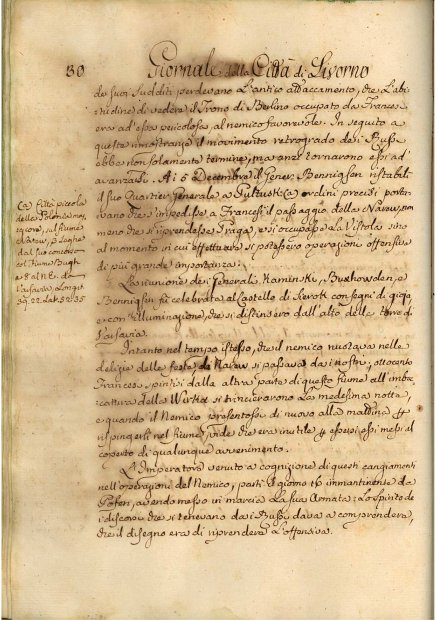 30 Giornale della Città di Livorno
de suoi Sudditi perdevano L'antico attaccamento, che L'abi=
tudine di vedere il Trono di Berlino occupato da Francesi
era ad essa pericolosa, al nemico favorevole. In seguito a
queste rimostranze il movimento retrogrado dei Russi
ebbe non solamente termine, ma anzi tornarono essi ad
avanzarsi. Ai 5 Decembre il Gener. Bennigsen ristabilì
il suo Quartier Generale a Pultusk (a) ordini precisi porta=
vano che s'impedisse a Francesi il passaggio della Narew, non
meno che si riprendesse Praga, e si occupasse la Vistola sino
al momento in cui effettuare si potessero operazioni offensive
di più grande importanza.
(a) Città piccola
della Polonia mag
giore, sul fiume
Narew, 
dal suo concorso
col Fiume Bugh
e 8 al N.E. da
Varsavia, Longit
39, 22. Lat. 52. 35
La riunione de' Generali Kaminski, Buxhowden, e
Bennigsen fù celebrata al Castello di Sierok con segni di gioja,
e con illuminazione, che si distinsero dall'alto delle torre di
Varsavia.
Intanto nel tempo istesso, che il nemico nuotava nelle
delizie delle feste, la Narew si passava dai nostri, ottocento
Francesi spintisi dalla altra parte di questo fiume all'imboc=
catura della Wirka si trincierarono La medesima notte,
e quando il Nemico presentossi di nuovo alla mattina p
rispingerli nel fiume, vide che era inutile p essersi essi messi al
coperto di qualunque avvenimento.
L'Imperatore venuto a cognizione di questi cangiamenti
nell'operazioni del Nemico, partì il giorno 16 immantinente da
Posen, avendo messo in marcia La sua Armata: Lo spirito de
i discorsi che si tenevano dai Russi dava a comprendere,
che il disegno era di riprendere L'offensiva.